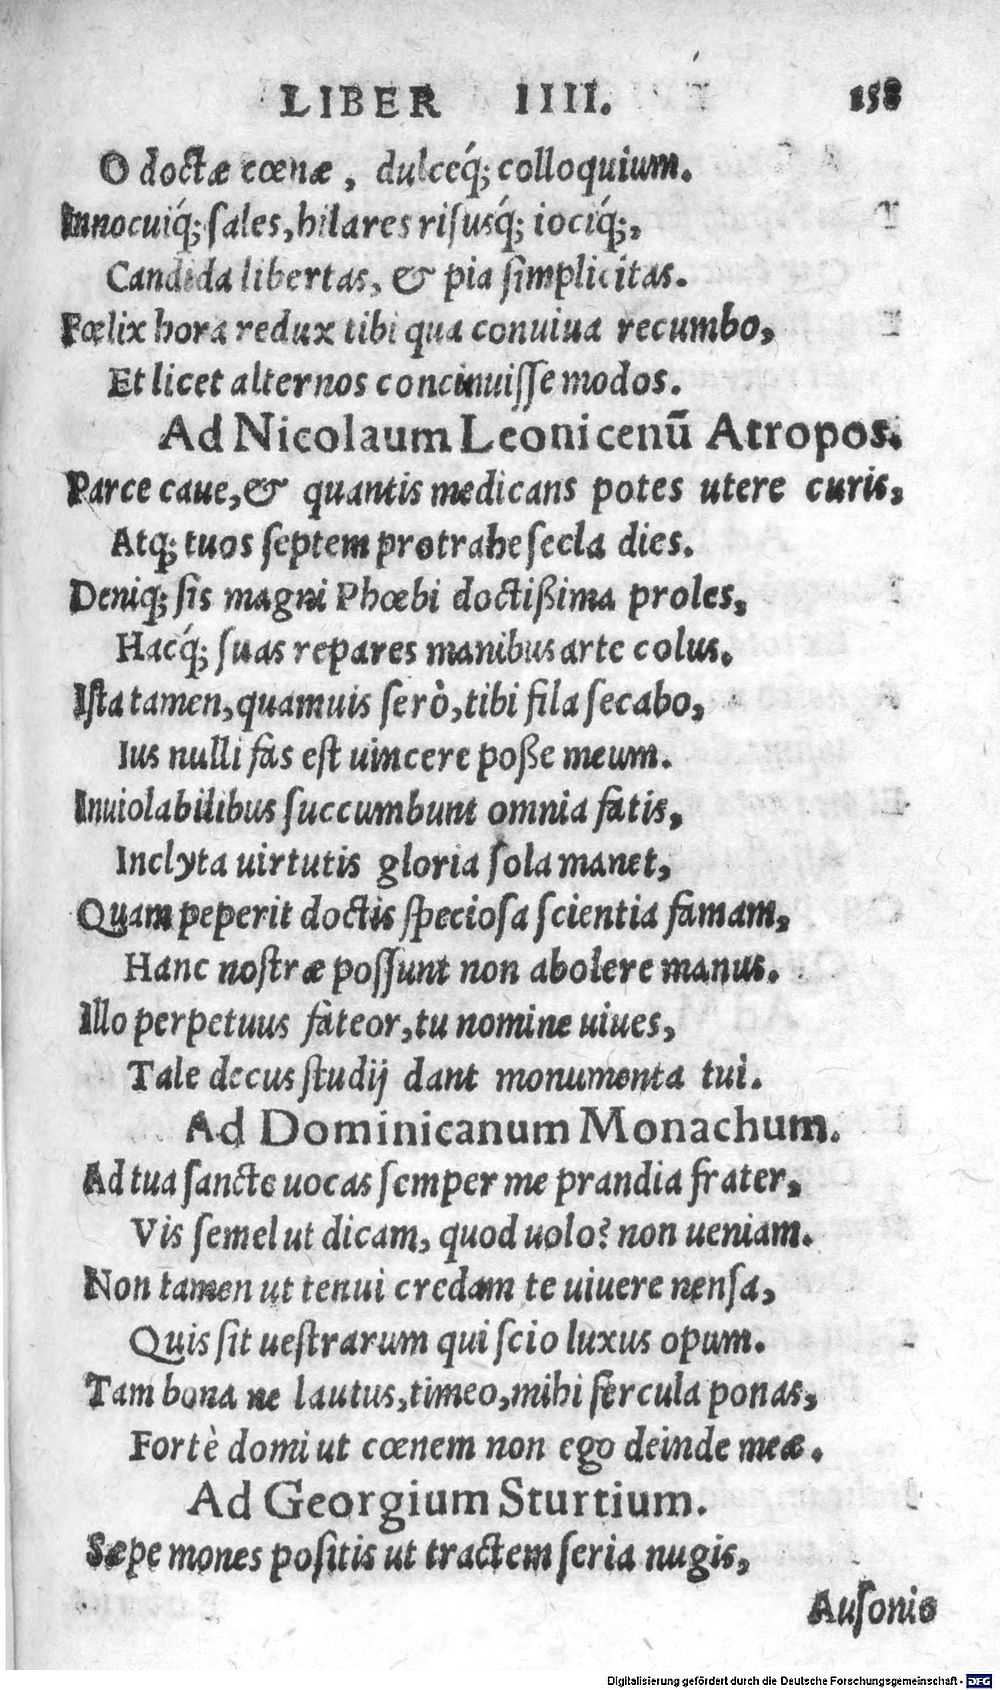 LIBER IIII. 158
O doctæ cœnæ, dulceq́; colloquium.
Innocuiq́; sales, hilares risusq́; iociq́;,
Candida libertas, & pia simplicitas.
Fœlix hora redux tibi qua conuiua recumbo,
Et licet alternos concinuisse modos.
Ad Nicolaum Leonicenū Atropos.
Parce caue, & quantis medicans potes utere curis,
Atq; tuos septem protrahe secla dies.
Deniq; sis magni Phœbi doctißima proles,
Hacq́; suas repares manibus arte colus.
Ista tamen, quamuis serò, tibi fila secabo,
Ius nulli fas est uincere poße meum.
Inuiolabilibus succumbunt omnia fatis,
Inclyta uirtutis gloria sola manet,
Quam peperit doctis speciosa scientia famam,
Hanc nostræ possunt non abolere manus.
Illo perpetuus fateor, tu nomine uiues,
Tale decus studij dant monumenta tui.
Ad Dominicanum Monachum.
Ad tua sancte uocas semper me prandia frater,
Vis semel ut dicam, quod uolo? non ueniam.
Non tamen ut tenui credam te uiuere nensa,
Quis sit uestrarum qui scio luxus opum.
Tam bona ne lautus, timeo, mihi fercula ponas,
Fortè domi ut cœnem non ego deinde meæ.
Ad Georgium Sturtium.
Sæpe mones positis ut tractem seria nugis,
Ausonio
Digitalisierung gefördert durch die Deutsche Forschungsgemeinschaft - DFG